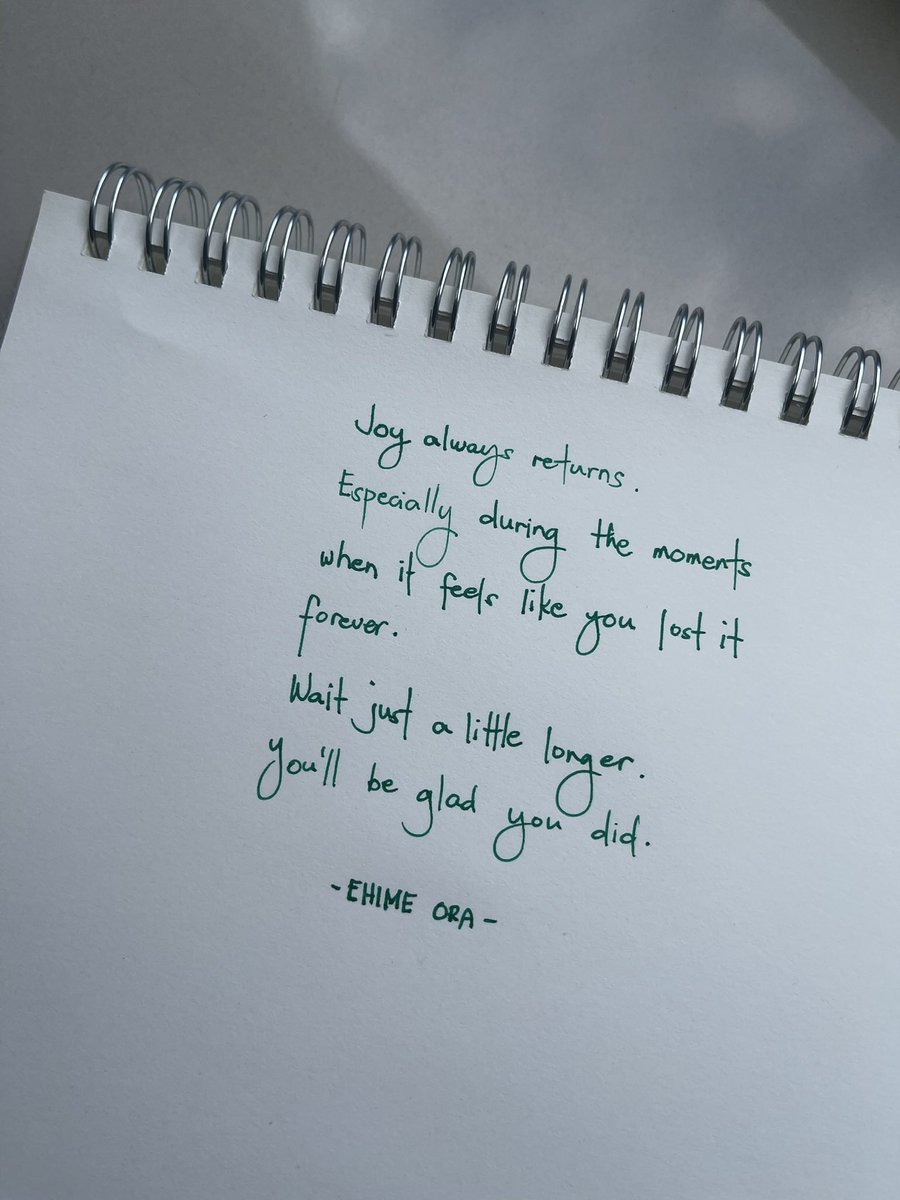 Joy always returns.
Especially during the moments
when it feels like you lost it
forever.
Wait just a little longer.
You'll be glad you did.
- EHIME ORA -